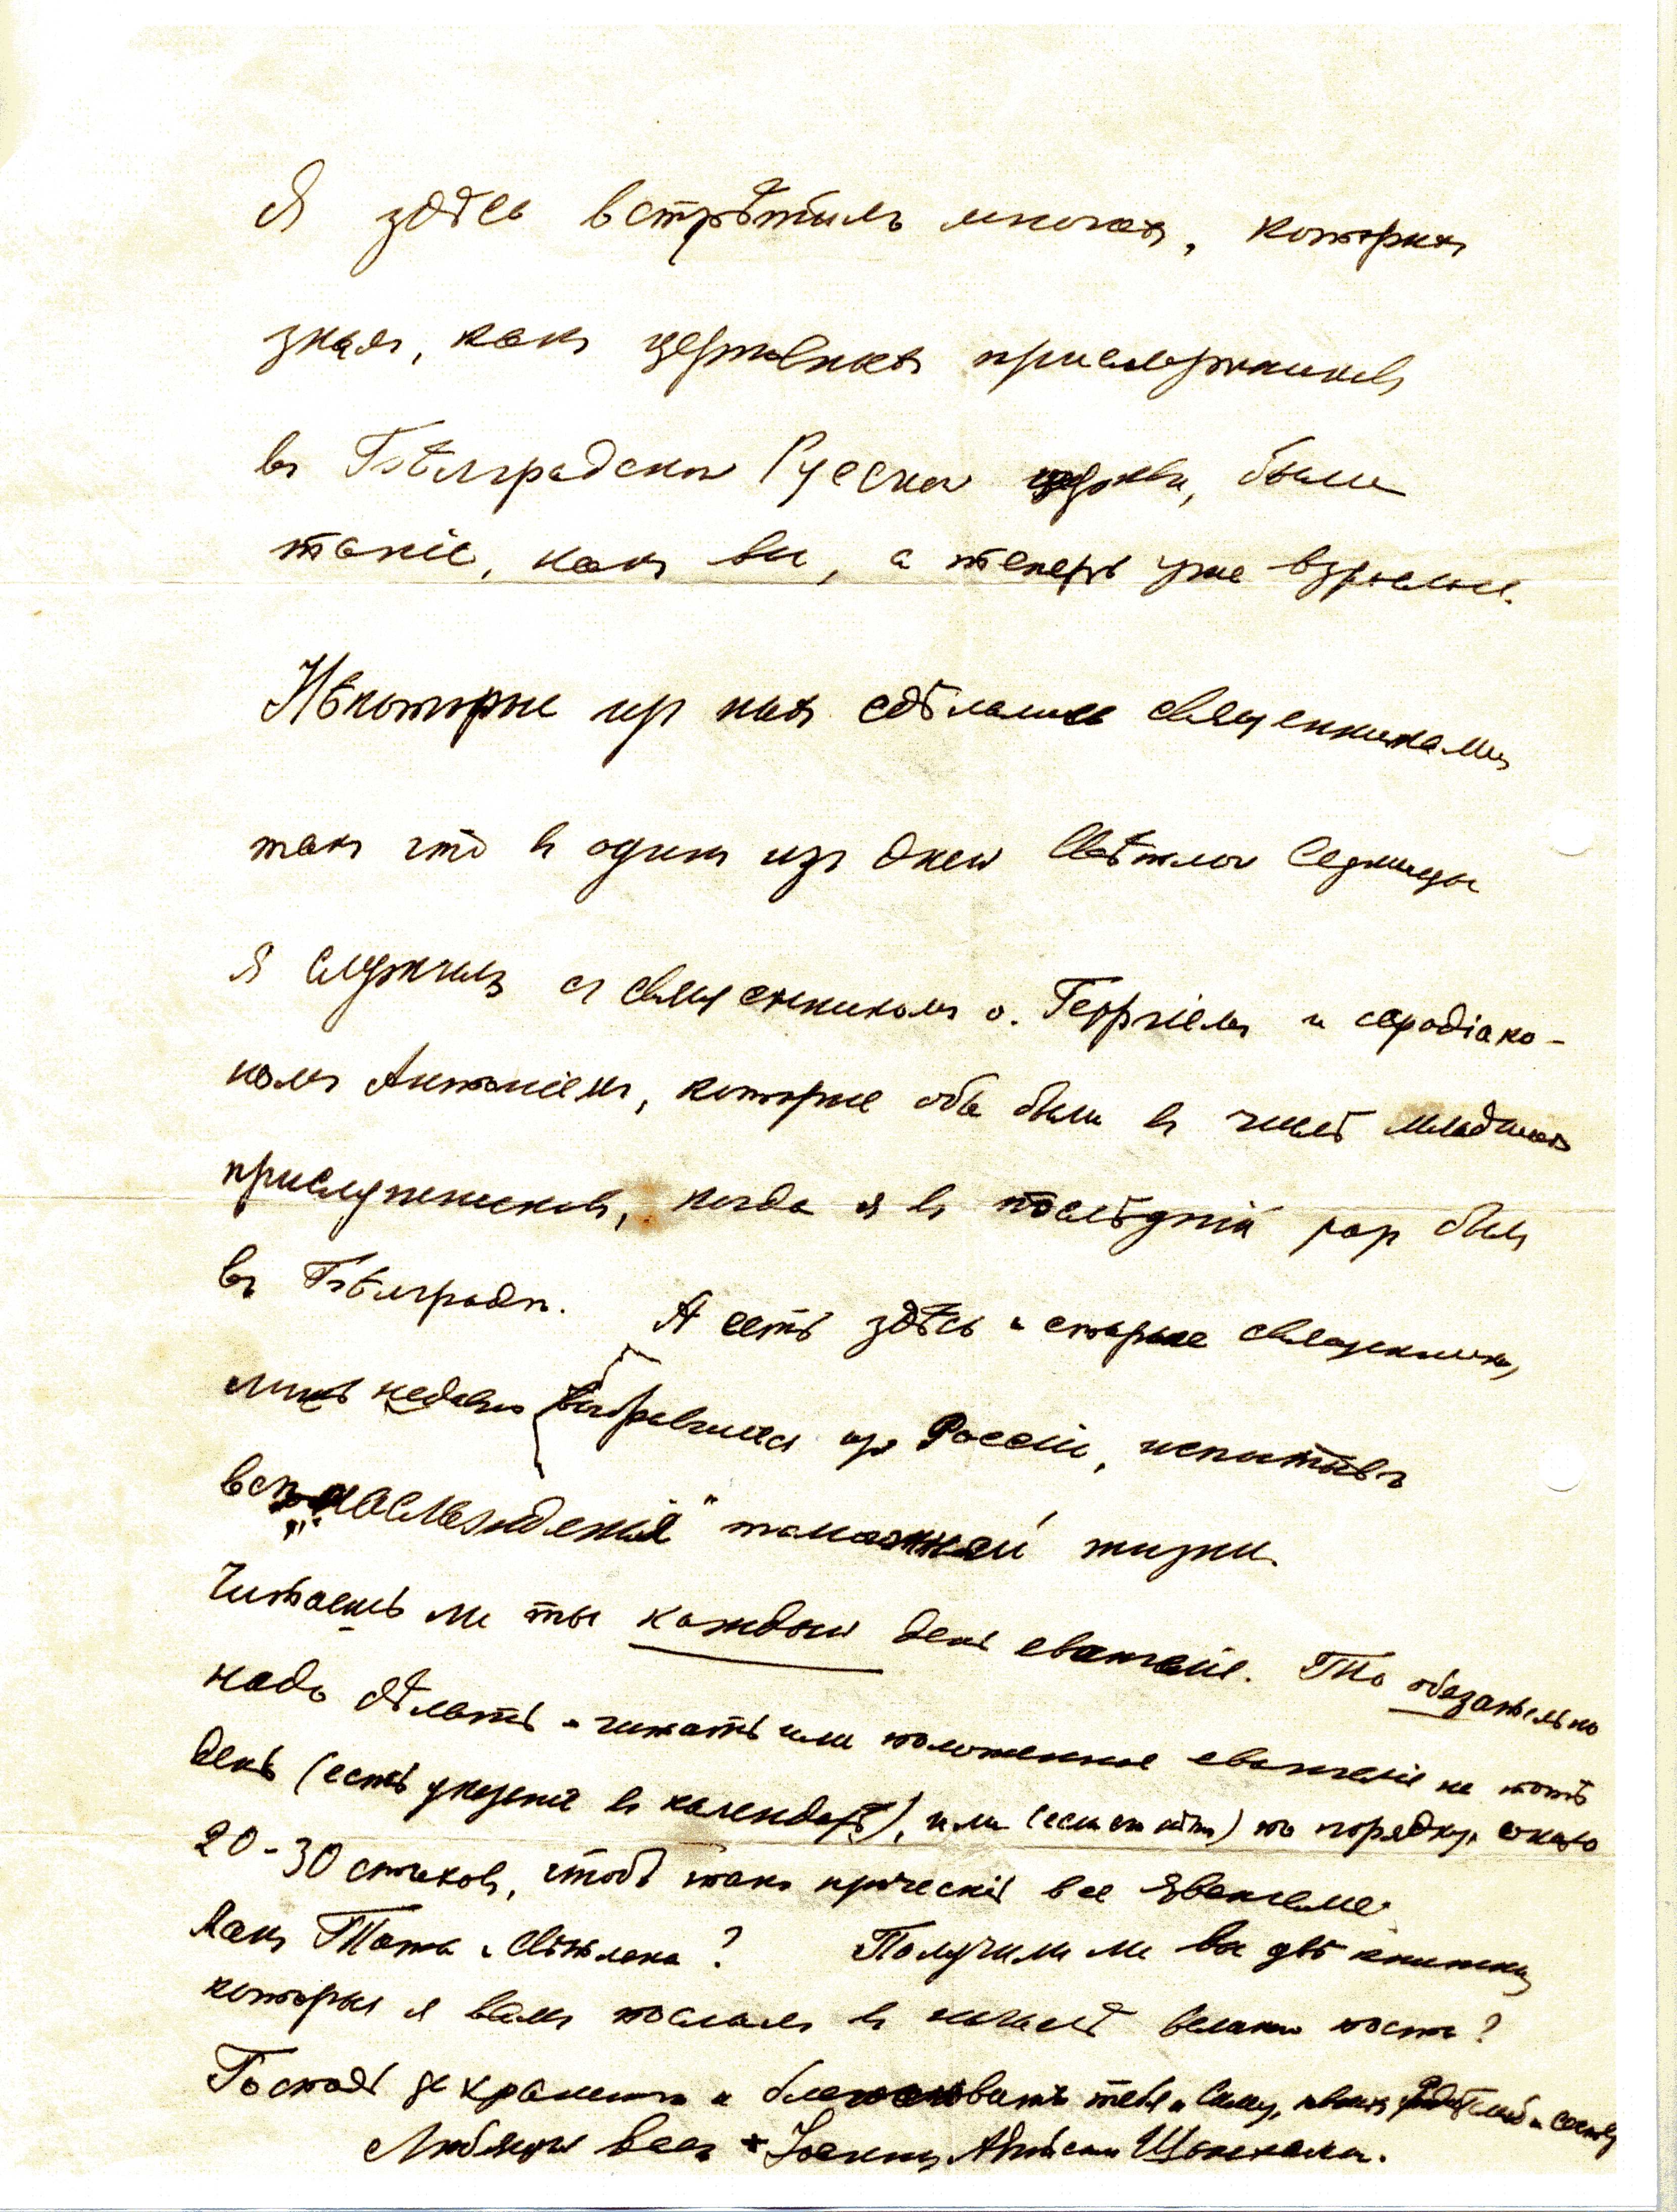 Я здѣсь встрѣтилъ многихъ, которыхъ
зналъ, какъ церковныхъ прислужниковъ
въ Бѣлградской Русской церкви, были
такіе, какъ вы, а теперь уже взрослые.
Нѣкоторые изъ нихъ сдѣлались священниками
такъ что въ одинъ изъ дней Свѣтлой Седмицы
я служилъ съ священникомъ о. Георгіемъ и іеродіако-
номъ Антоніемъ, которые оба были въ числѣ младшихъ
прислужниковъ, когда я въ послѣдній раз былъ
въ Бѣлградѣ. А есть здѣсь и старые священники,
лишь недавно выбравшиеся из Россіи, испытавъ
всѣ „наслажденія" тамошней жизни.
Читаешь ли ты каждый день евангеліе. Это обязательно
надо дѣлать - читать или положенное евангеліе на тотъ
день (есть указанія въ календарѣ), или (если его нѣтъ) по порядку, около
20-30 стиховъ, чтобъ такъ прочесть все Евангеліе.
Какъ Тата и Свѣтлана? Получили ли вы двѣ книжки
которыя я вамъ послалъ въ началѣ великаго поста?
Господь да хранитъ и благословитъ тебя и Симу, вашихъ родителей и сестеръ
Любящій васъ + Іоаннъ, Епископ Шанхайскій.